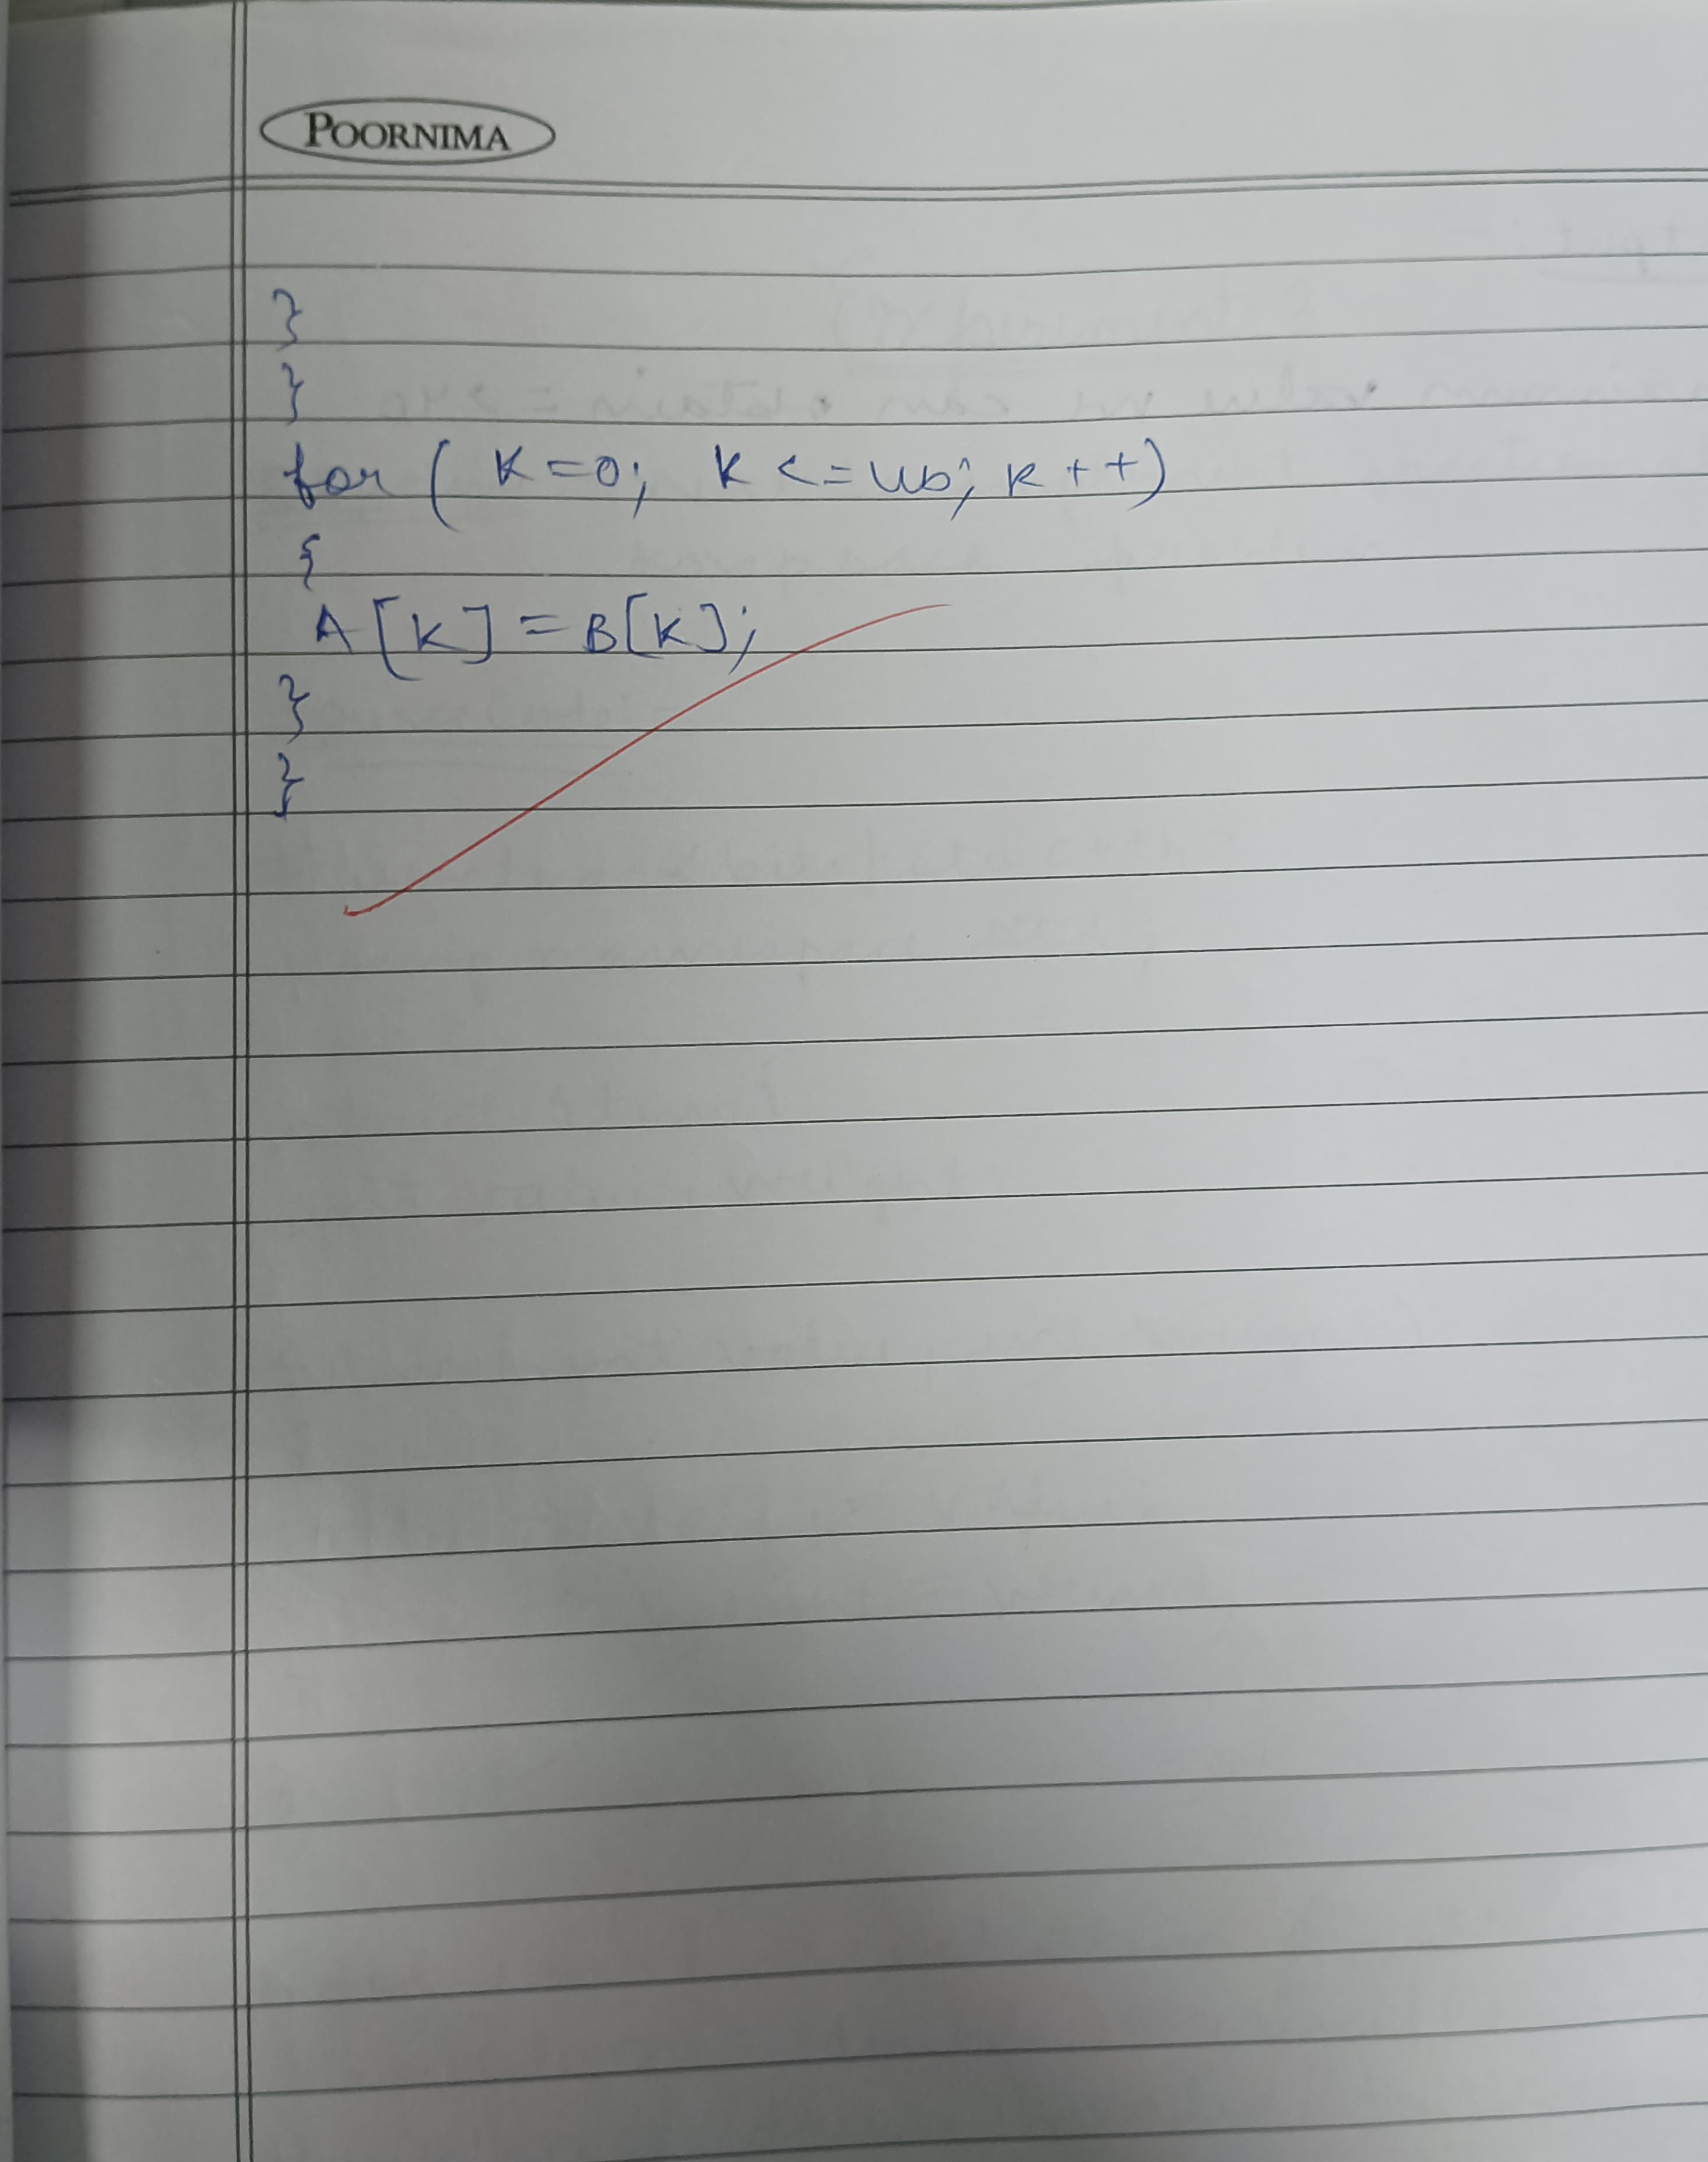 POORNIMA
}
}
for ( K=0; K <= ub; K++)
{
A[K] = B[K];
}
}